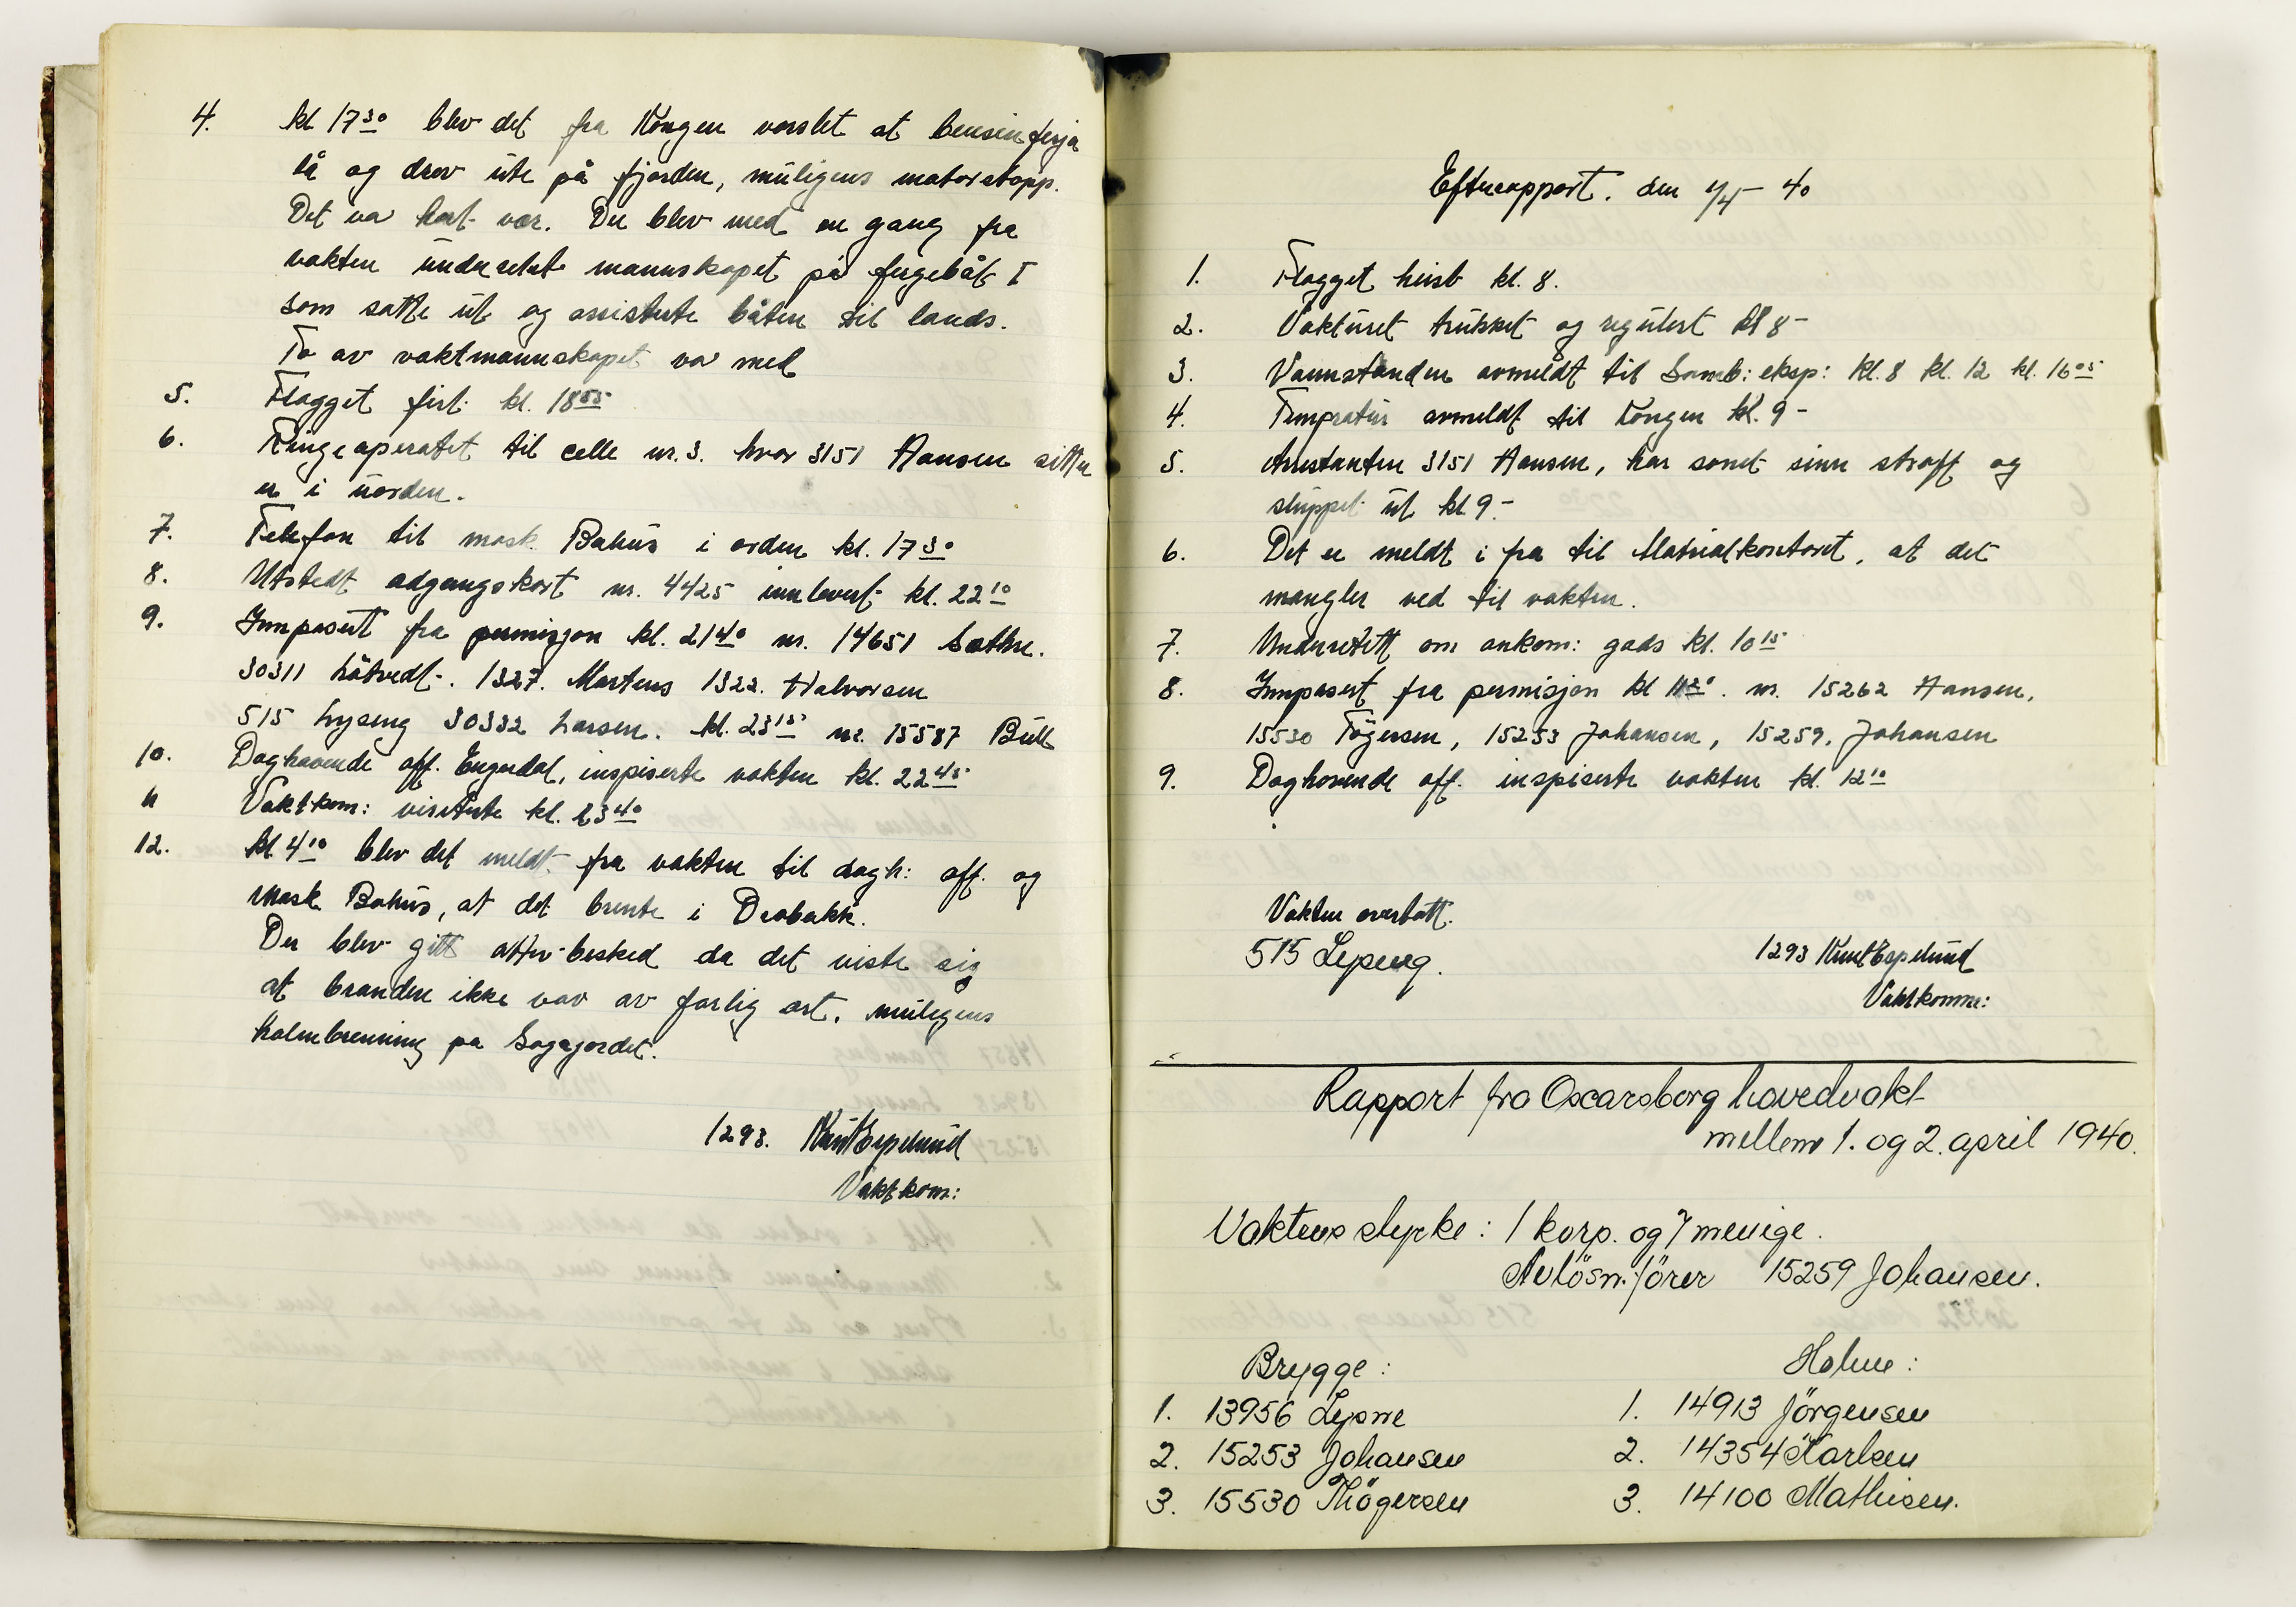 4. kl 17³⁰ blev det fra Kongen varslet at bensinferja
lå og drev ute på fjorden, muligens motorstopp.
Det va kort var. Der blev med en gang fra
vakten underrettet mannskapet på fergebåt I
som satte ut og assisterte båten til lands.
To av vaktmannskapet va med
5. Flagget firt kl. 18⁵⁵
6. Ringeaperatet til celle nr. 3. hvor 3151 Hansen sitter
er i uorden.
7. Telefon til mask. Bahus i orden kl. 17³⁰
8. Utstedt adgangskort nr. 4425 innlevert kl. 22¹⁰
9. Innpasert fra permisjon kl. 21⁴⁰ nr. 14651 Sæthre.
30311 Låtvedt. 1327. Martens 1322. Halvorsen
515 Lyseng 30332 Larsen. kl. 23¹⁵ nr. 15587 Bull
10. Daghavende off. Engerdal, inspiserte vakten kl. 22⁴⁵
11 Vaktkom: visiterte kl. 23⁴⁰
12. kl. 4¹⁰ blev det meldt fra vakten til dagh: off. og
mask Bahus, at det brente i Drøbakk.
Der blev gitt atter besked da det viste sig
at branden ikke var av farlig art. muligens
halmbrenning på Sogsjordet.
1293. Knut Espelund
Vaktkom:
Efterrapport. den 1/4 - 40
1. Flagget heist kl. 8.
2. Vakturet trukket og regulert kl 8-
3. Vannstanden avmeldt til Samb: eksp: kl. 8 kl. 12 kl. 16⁰⁵
4. Tempratur avmeldt til Kongen kl. 9-
5. Arrestanten 3151 Hansen, har sonet sinn straff og
sluppet ut kl. 9-
6. Det er meldt i fra til Matrialkontoret, at det
mangler ved til vakten.
7. Underrettet om ankom: gods kl. 10¹⁵
8. Innpasert fra permisjon kl 11³⁰. nr. 15262 Hansen,
15530 Tögersen, 15253 Johansen, 15259, Johansen
9. Daghavende off. inspiserte vakten kl. 12¹⁰
Vakten overtatt.
515 Lyseng. 1293 Knut Espelund
Vaktkomm:
Rapport fra Oscarsborg hovedvakt
mellem 1. og 2. april 1940.
Vaktens styrke: 1 korp. og 7 menige.
Avlösn. förer 15259 Johansen.
Brygge: Holme:
1. 13956 Lysne 1. 14913 Jörgensen
2. 15253 Johansen 2. 14354 Karlsen
3. 15530 Thögersen 3. 14100 Mathisen.